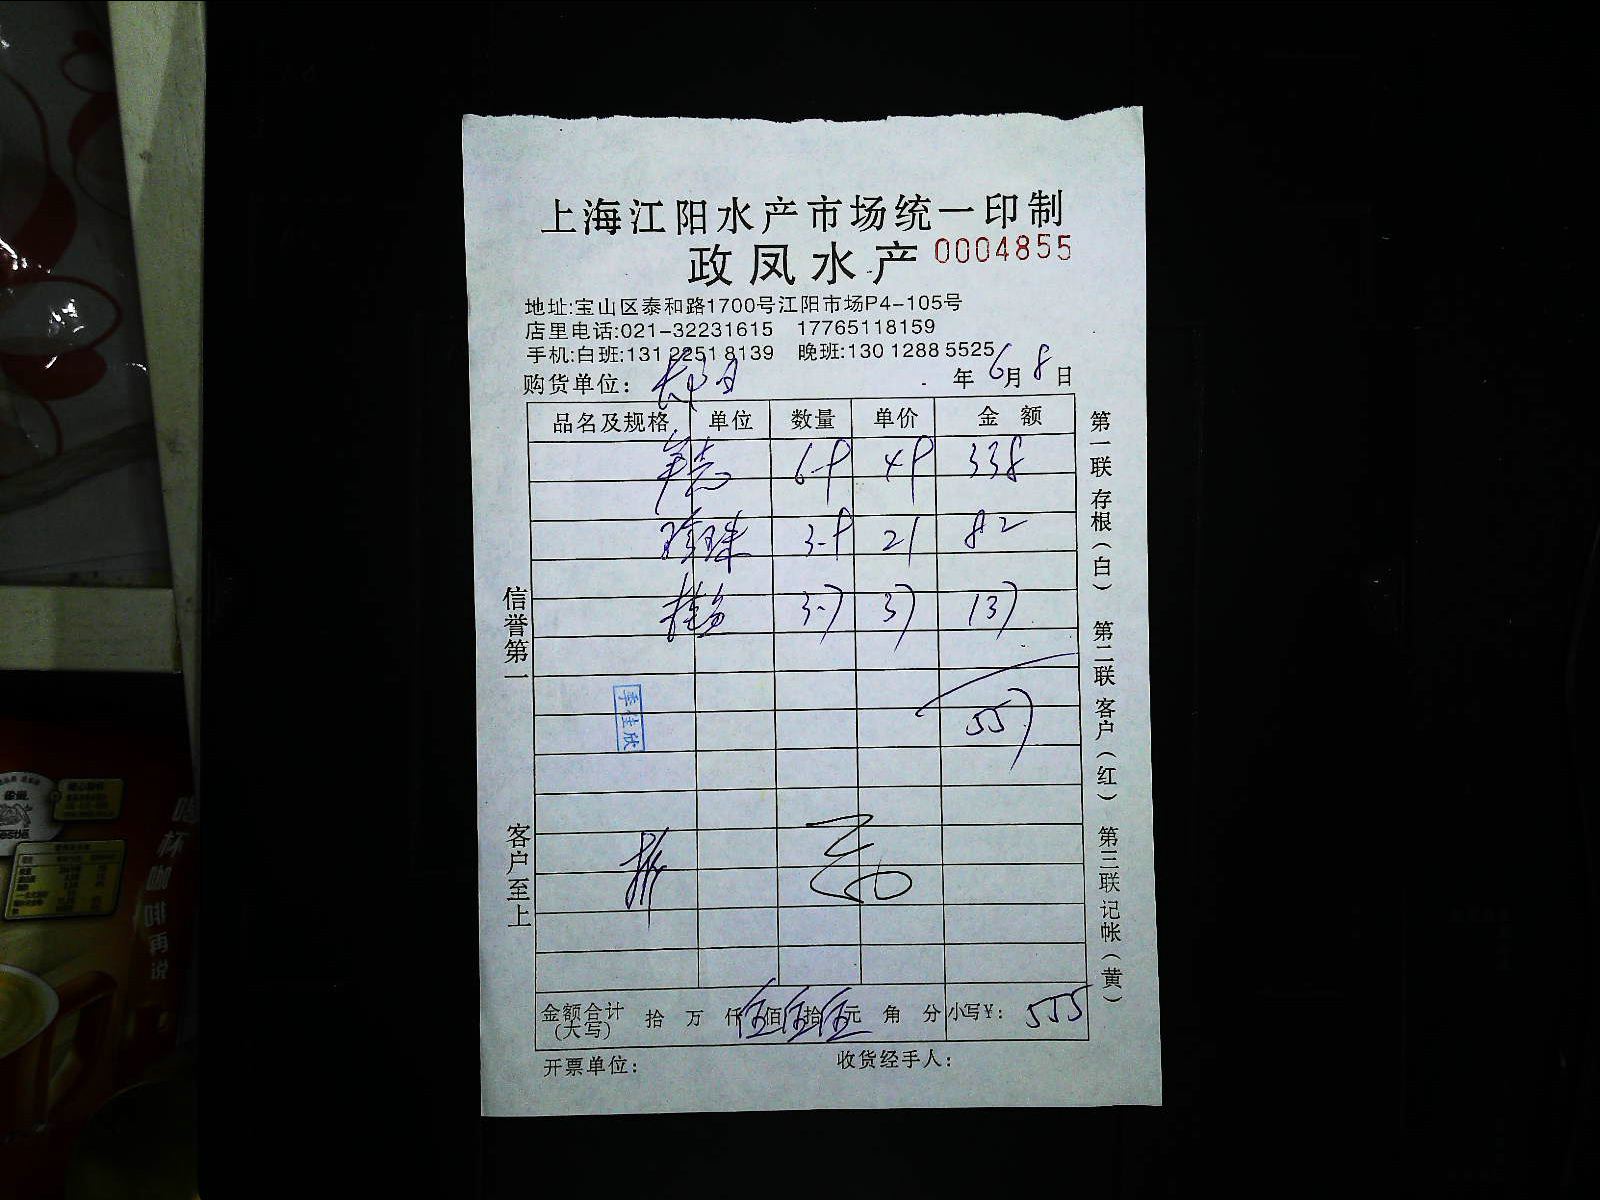 上海江阳水产市场统一印制
政凤水产 0004855
地址:宝山区泰和路1700号江阳市场P4-105号
店里电话:021-32231615 17765118159
手机:白班:131 2251 8139 晚班:130 1288 5525
购货单位: 年 6月 8日
品名及规格 单位 数量 单价 金额
338
珍珠 21 82
37 137
557
季佳欣
金额合计(大写) 拾 万 仟 伍佰 伍拾 伍元 角 分 小写¥: 555
开票单位: 收货经手人:
信誉第一
客户至上
第一联 存根(白) 第二联 客户(红) 第三联 记帐(黄)
雀巢
Nestlé
喝杯咖啡再说